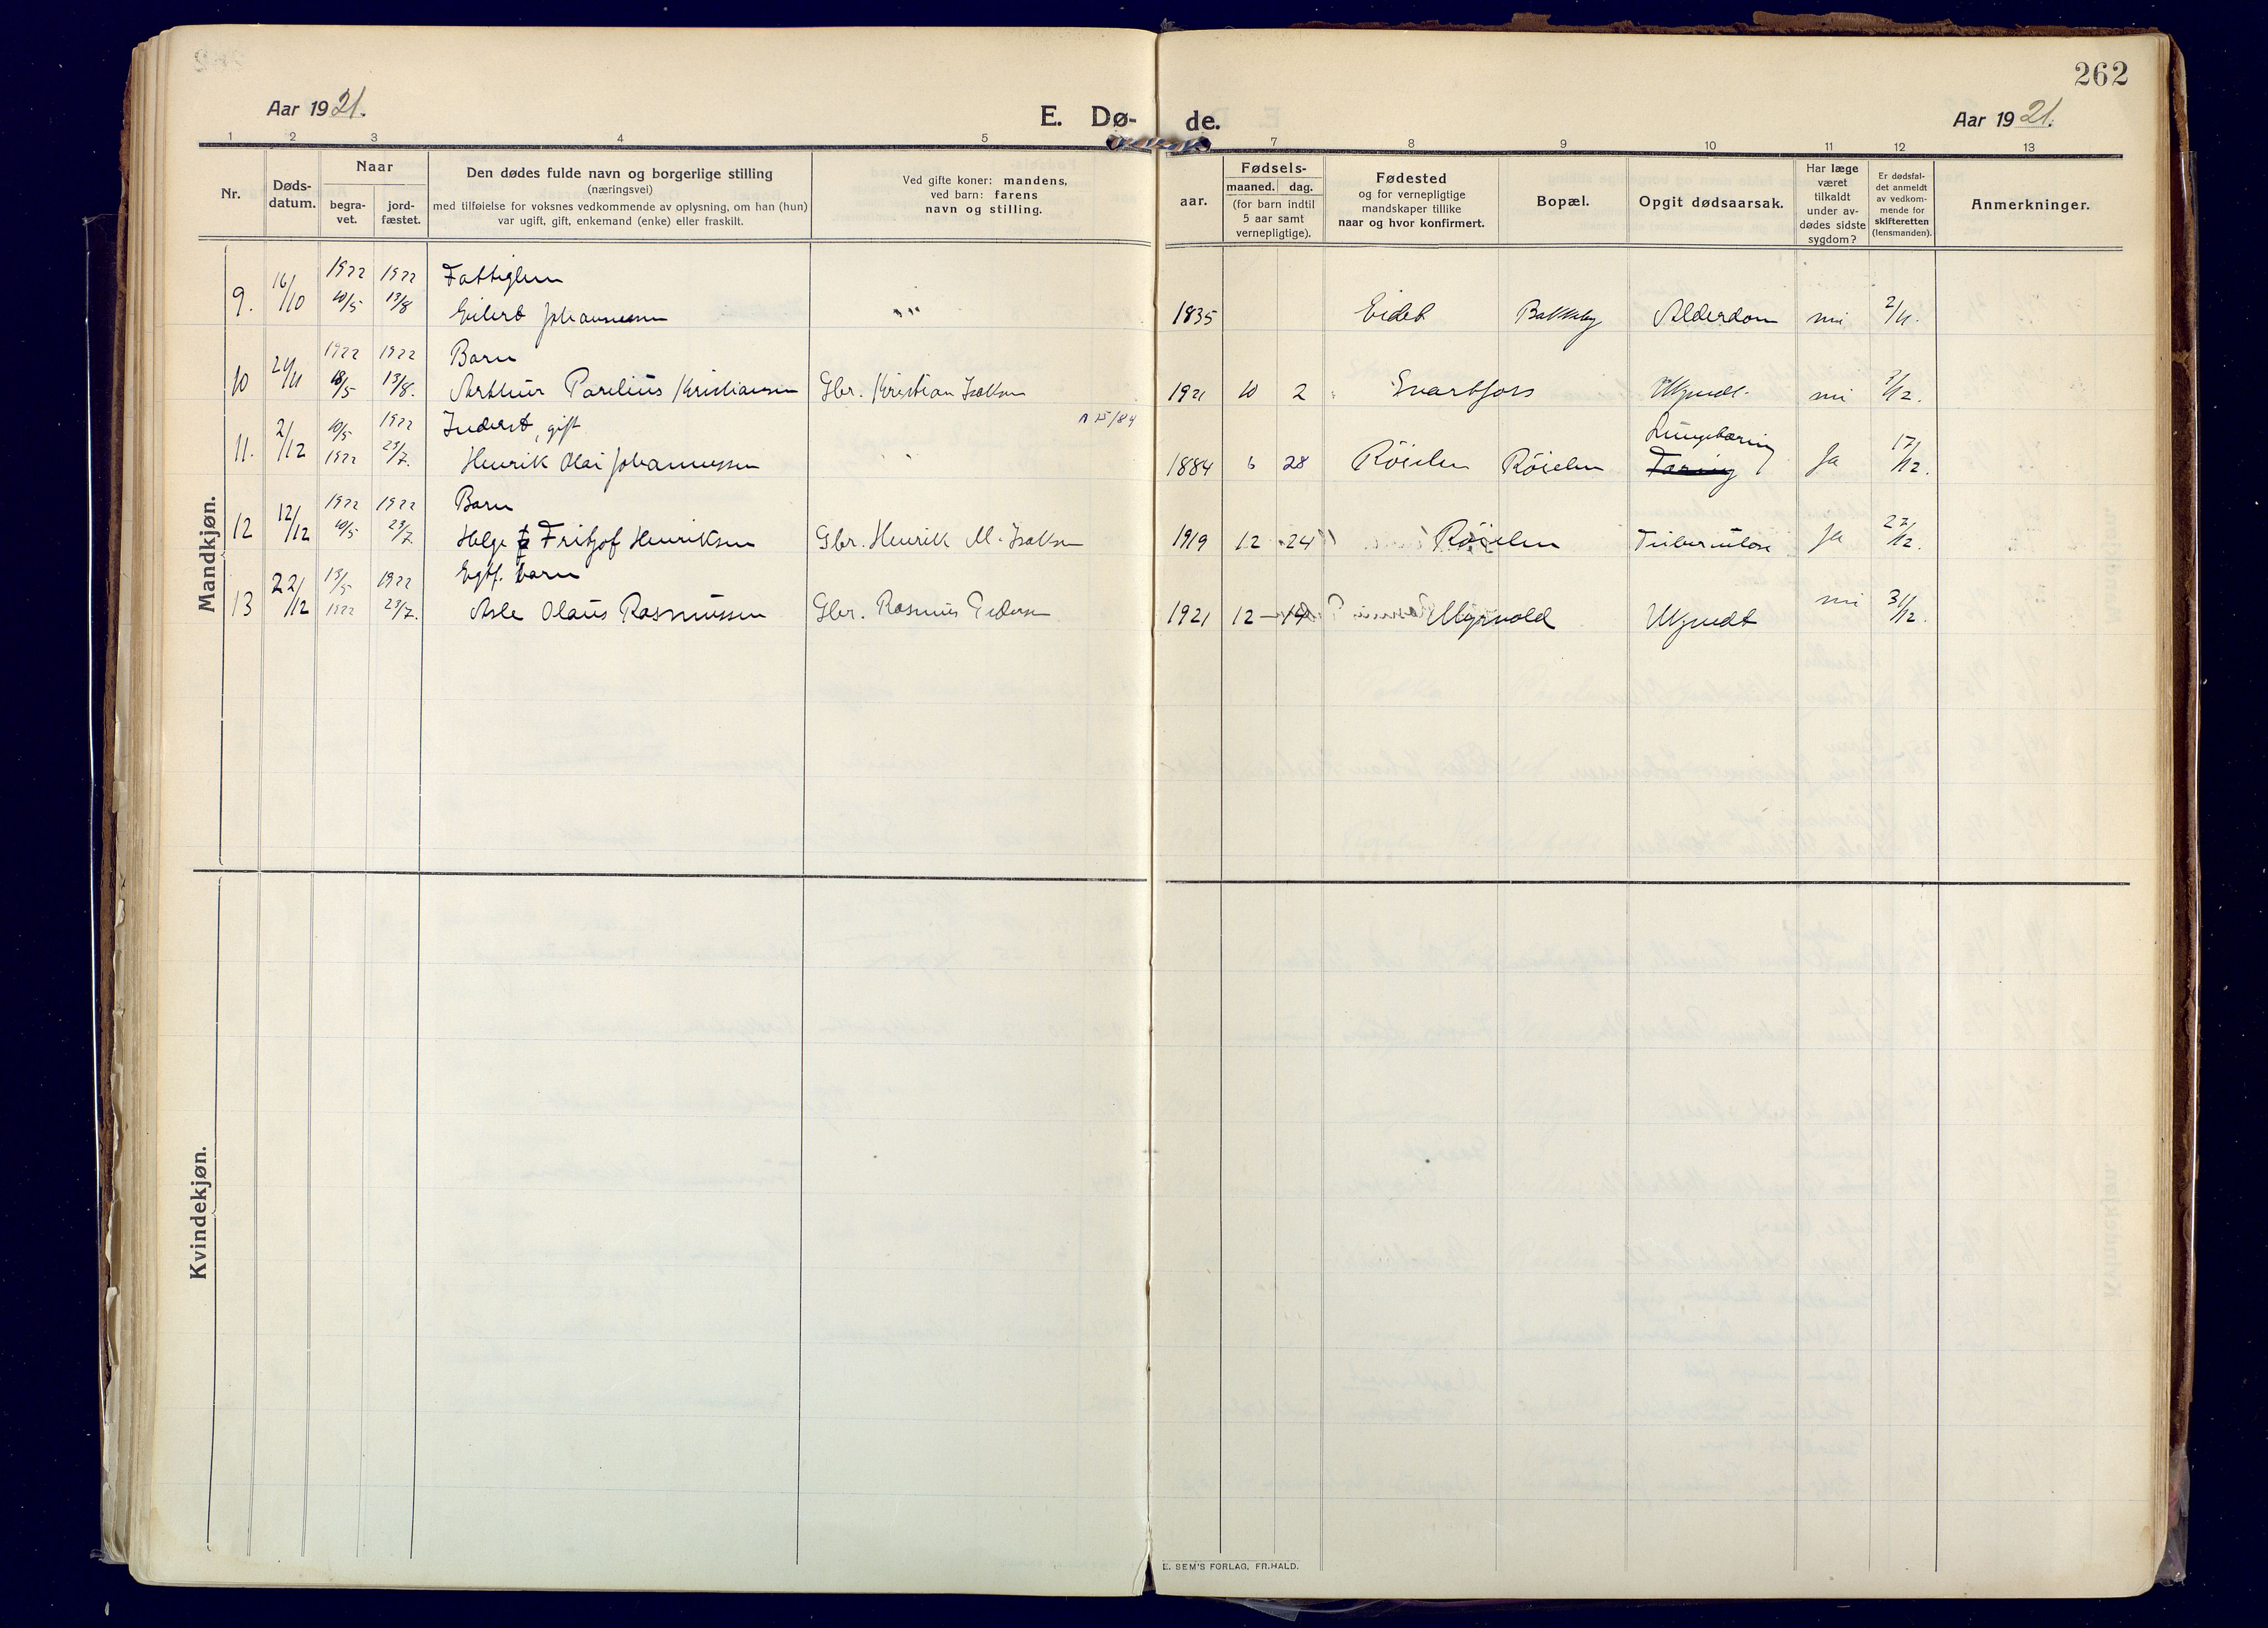 262
Aar 1921.
E. Dø-
de.
Aar 1921.
1 2 3 4 5 7 8 9 10 11 12 13
Nr.
Døds-
datum.
Naar
begra-
vet.
jord-
fæstet.
Den dødes fulde navn og borgerlige stilling
(næringsvei)
med tilføielse for voksnes vedkommende av oplysning, om han (hun)
var ugift, gift, enkemand (enke) eller fraskilt.
Ved gifte koner: mandens,
ved barn: farens
navn og stilling.
aar.
Fødsels-
maaned. dag.
(for barn indtil
5 aar samt
vernepligtige).
Fødested
og for vernepligtige
mandskaper tillike
naar og hvor konfirmert.
Bopæl.
Opgit dødsaarsak.
Har læge
været
tilkaldt
under av-
dødes sidste
sygdom?
Er dødsfal-
det anmeldt
av vedkom-
mende for
skifteretten
(lensmanden).
Anmerkninger.
Mandkjøn.
1922 1922 Fattiglem
9. 16/10 10/5 13/8 Eilert Johannessen " 1835 Eidet Bakkeby Alderdom nei 2/11.
1922 1922 Barn
10 18/5 13/8. Arthur Parelius Kristiansen Gbr. Kristian Isaksen 1921 10 2 Svartfors Ukjendt. nei /12.
10/5 1922 Inderst, gift n 15/84
Lungebæring
11. 2/12 1922 23/7. Henrik Olai Johannessen 1884 6 28 Röielen Röielen Tæring Ja 17/12.
1922 1922 Barn
12 12/12 10/5 23/7. Helge Fritjof Henriksen Gbr. Henrik M. Isaksen 1919 12 24 Röielen Tuberculose Ja 27/12.
13/5 1922 Egtf. barn
13 22/12 1922 23/7. Asle Olaus Rasmussen Gbr. Rasmus Pedersen 1921 12 - 14 Myrvold Ukjendt nei 31/12.
Kvindekjøn.
E. SEM'S FORLAG, FR.HALD.